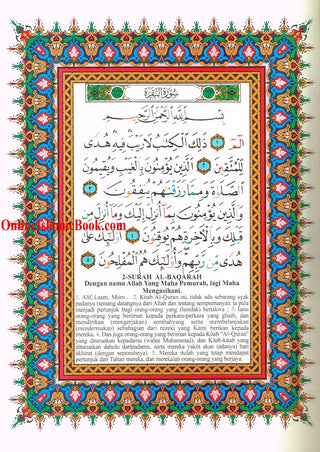 سُورَةُ البَقَرَة
بِسْمِ اللَّهِ الرَّحْمَٰنِ الرَّحِيمِ
الٓمٓ ١ ذَٰلِكَ الْكِتَٰبُ لَا رَيْبَ فِيهِ هُدًى
لِّلْمُتَّقِينَ ٢ الَّذِينَ يُؤْمِنُونَ بِالْغَيْبِ وَيُقِيمُونَ
الصَّلَاةَ وَمِمَّا رَزَقْنَٰهُمْ يُنفِقُونَ ٣
وَالَّذِينَ يُؤْمِنُونَ بِمَا أُنزِلَ إِلَيْكَ وَمَا أُنزِلَ مِن
قَبْلِكَ وَبِالْآخِرَةِ هُمْ يُوقِنُونَ ٤ أُولَٰئِكَ عَلَىٰ
هُدًى مِّن رَّبِّهِمْ وَأُولَٰئِكَ هُمُ الْمُفْلِحُونَ ٥
2-SURAH AL-BAQARAH
Dengan nama Allah Yang Maha Pemurah, lagi Maha
Mengasihani.
1. Alif, Laam, Miim . 2. Kitab Al-Quran ini, tidak ada sebarang syak
padanya (tentang datangnya dari Allah dan tentang sempurnanya); ia pula
menjadi petunjuk bagi orang-orang yang (hendak) bertakwa ; 3. Iaitu
orang-orang yang beriman kepada perkara-perkara yang ghaib, dan
mendirikan (mengerjakan) sembahyang serta membelanjakan
(mendermakan) sebahagian dari rezeki yang Kami berikan kepada
mereka. 4. Dan juga orang-orang yang beriman kepada Kitab "Al-Quran"
yang diturunkan kepadamu (wahai Muhammad), dan Kitab-kitab yang
diturunkan dahulu daripadamu, serta mereka yakin akan (adanya) hari
akhirat (dengan sepenuhnya). 5. Mereka itulah yang tetap mendapat
petunjuk dari Tuhan mereka, dan merekalah orang-orang yang berjaya.